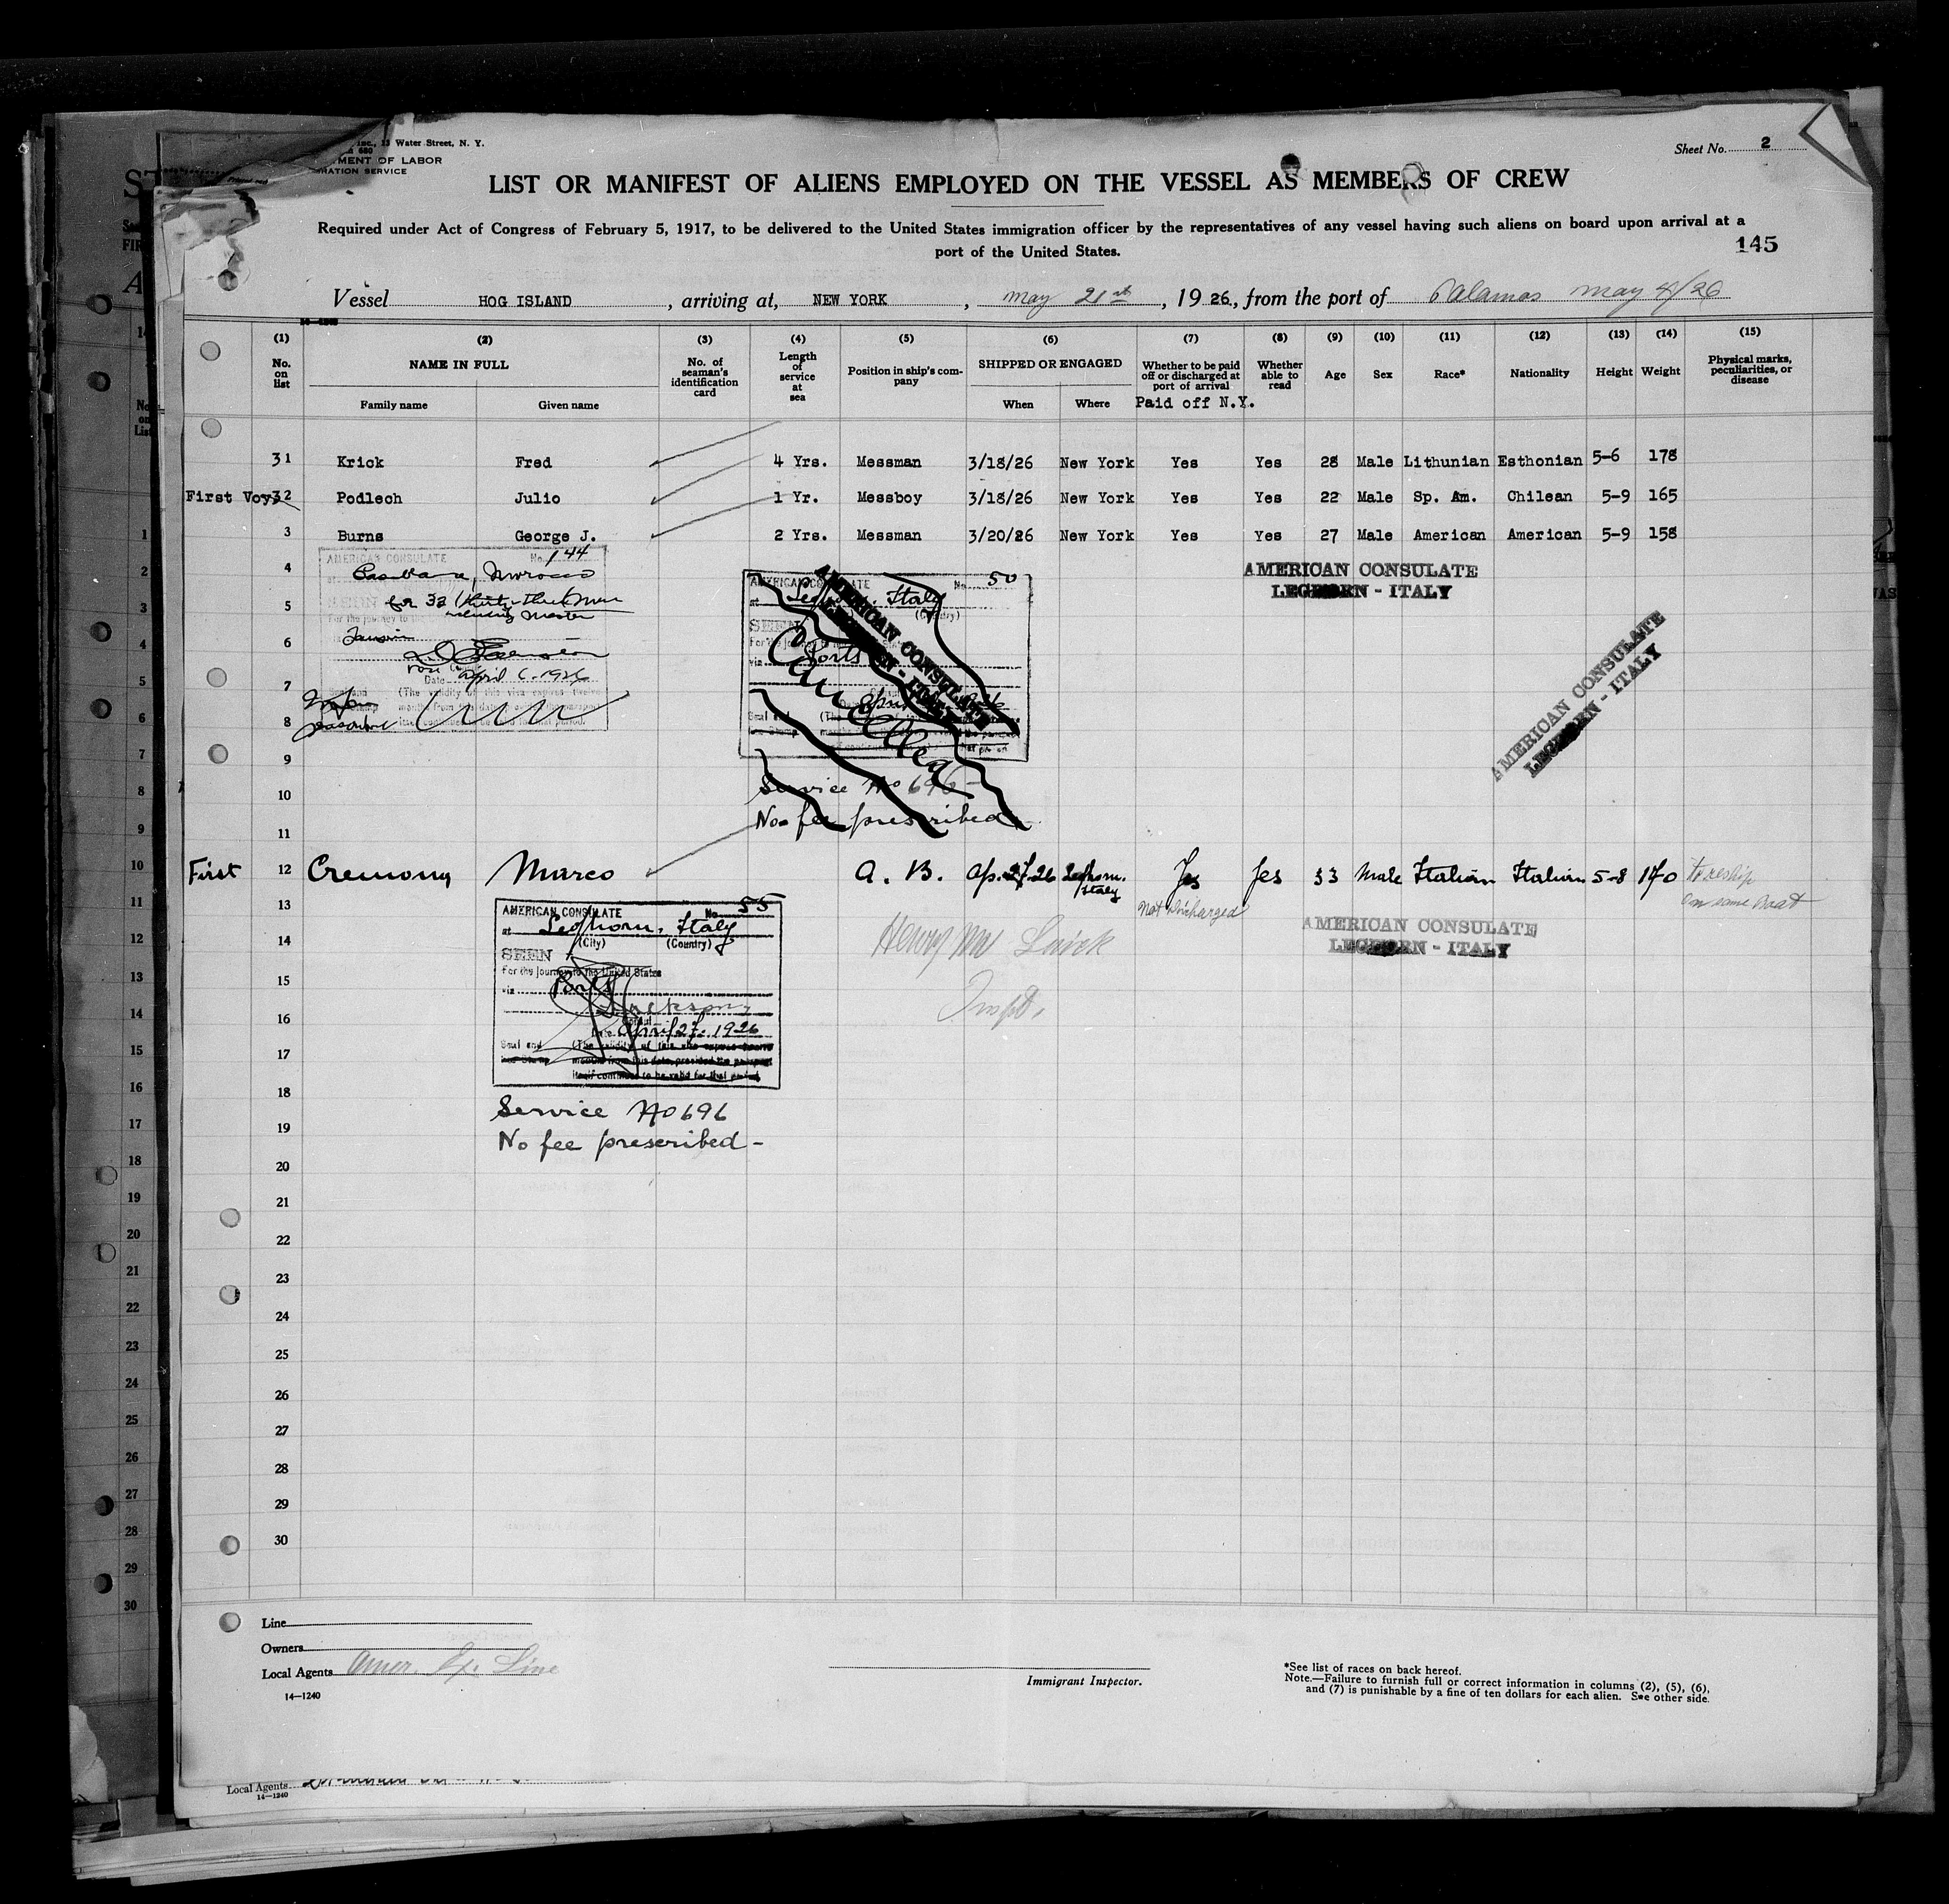 Inc., 15 Water Street, N. Y.
MENT OF LABOR
RATION SERVICE
Sheet No. 2
LIST OR MANIFEST OF ALIENS EMPLOYED ON THE VESSEL AS MEMBERS OF CREW
Required under Act of Congress of February 5, 1917, to be delivered to the United States immigration officer by the representatives of any vessel having such aliens on board upon arrival at a
port of the United States.
145
Vessel HOG ISLAND, arriving at, NEW YORK, May 21st, 1926, from the port of Palamos May 4/26
(1) (2) (3) (4) (5) (6) (7) (8) (9) (10) (11) (12) (13) (14) (15)
No. on list NAME IN FULL Family name Given name No. of seaman's identification card Length of service at sea Position in ship's company SHIPPED OR ENGAGED When Where Whether to be paid off or discharged at port of arrival Whether able to read Age Sex Race* Nationality Height Weight Physical marks, peculiarities, or disease
Paid off N.Y.
31 Krick Fred 4 Yrs. Messman 3/18/26 New York Yes Yes 28 Male Lithunian Esthonian 5-6 178
First Voy. 32 Podlech Julio 1 Yr. Messboy 3/18/26 New York Yes Yes 22 Male Sp. Am. Chilean 5-9 165
3 Burns George J. 2 Yrs. Messman 3/20/26 New York Yes Yes 27 Male American American 5-9 158
4
AMERICAN CONSULATE No. 144
Casablanca, Morocco
for 33 (thirty-three) men
including Master
Date April 6, 1926
5
6
7
8
9
10
11
AMERICAN CONSULATE No. 50
at Leghorn, Italy
(Country)
SEEN
Ports
Cancelled
AMERICAN CONSULATE
LEGHORN - ITALY
Service No 696-
No fee prescribed-
AMERICAN CONSULATE
LEGHORN - ITALY
AMERICAN CONSULATE
LEGHORN - ITALY
First 12 Cremony Marco A. B. Ap. 27. 26 Leghorn. Italy Yes Yes 33 Male Italian Italian 5-8 140 To reship
on same boat
Not Discharged
13
AMERICAN CONSULATE No. 55
at Leghorn, Italy
(City) (Country)
SEEN
For the journey to the United States
via Ports
Date April 27. 1926
Seal and (The validity of this visa expires twelve
months from this date, provided the passport
itself continues to be valid for that period.
Service No 696
No fee prescribed-
Henry
Inspt.
AMERICAN CONSULATE
LEGHORN - ITALY
14
15
16
17
18
19
20
21
22
23
24
25
26
27
28
29
30
Line
Owners
Local Agents Amer. Ex. Line
14—1240
Immigrant Inspector.
*See list of races on back hereof.
Note.—Failure to furnish full or correct information in columns (2), (5), (6),
and (7) is punishable by a fine of ten dollars for each alien. See other side.
Local Agents
14—1240